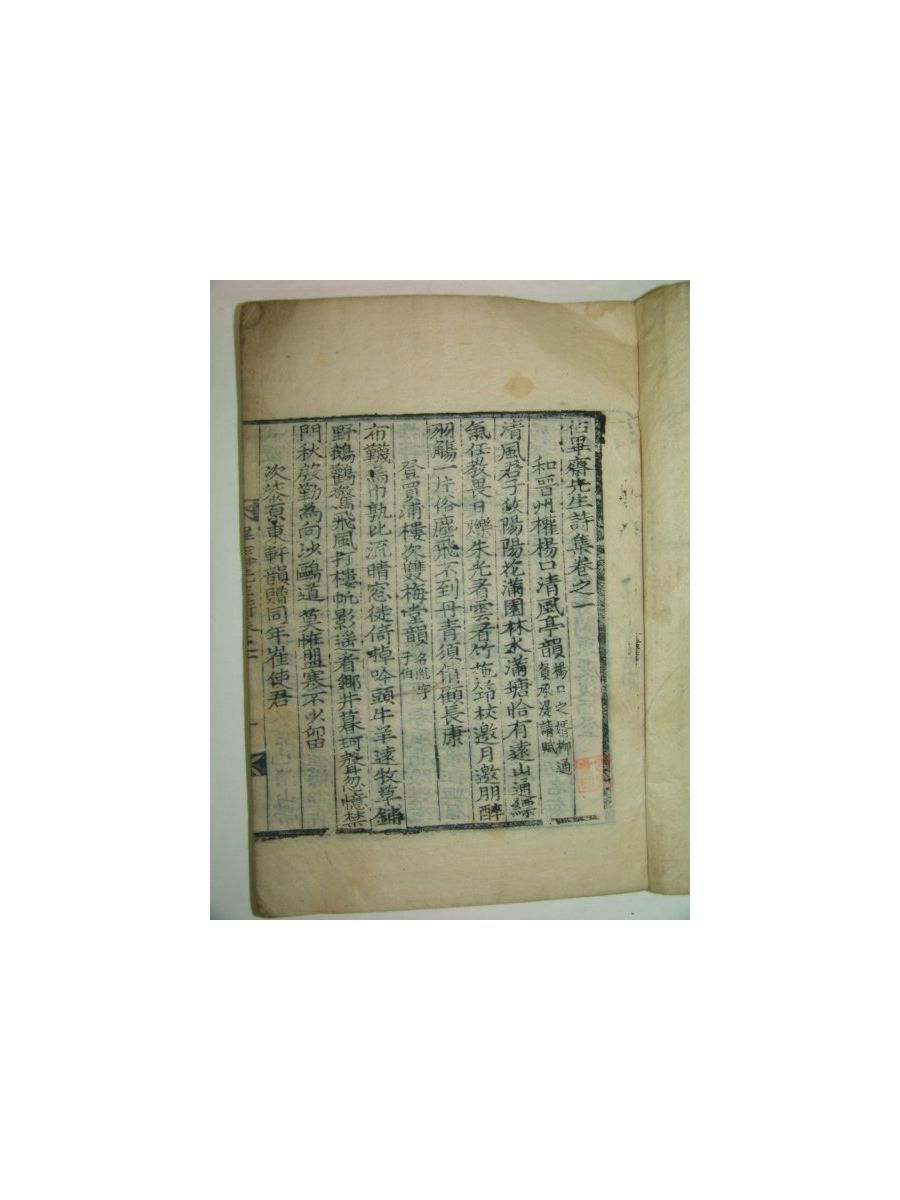 佔畢齋先生詩集卷之一
和晉州權楊口清風亭韻 楊口之婿柳通
負承湜請賦
清風君子故陽陽花滿園林水滿塘恰有遠山通縹
氣任教畏日爍朱光看雲看竹拖筇杖邀月邀朋醉
羽觴一片俗塵飛不到丹青須倩顧長康
登買浦樓次雙梅堂韻 名胤字
子伯
布襪烏巾孰比流晴窓徙倚棹吟頭牛羊遠牧草鋪
野鵝鸛驚飛風打樓帆影遥看鄉井暮珂聲忽憶禁
門秋慇勤為向沙鷗道莫怪盟寒不少留
次柒原東軒韻贈同年崔使君